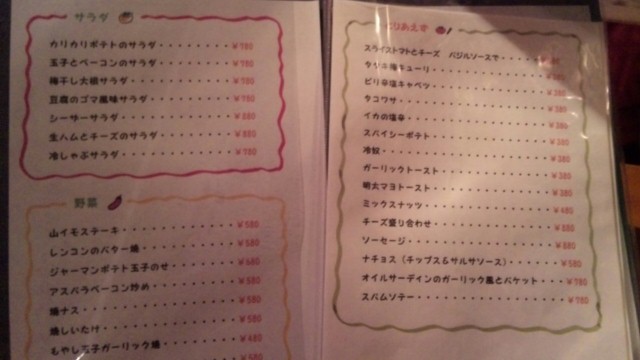 サラダ
カリカリポテトのサラダ・・・・・・・・・¥780
玉子とベーコンのサラダ・・・・・・・・・¥780
梅干し大根サラダ・・・・・・・・・¥780
豆腐のゴマ風味サラダ・・・・・・・・・¥780
シーザーサラダ・・・・・・・・・¥880
生ハムとチーズのサラダ・・・・・・・・・¥880
冷しゃぶサラダ・・・・・・・・・¥780
野菜
山イモステーキ・・・・・・・・・¥580
レンコンのバター焼・・・・・・・・・¥580
ジャーマンポテト玉子のせ・・・・・・・・・¥580
アスパラベーコン炒め・・・・・・・・・¥580
焼ナス・・・・・・・・・¥580
焼しいたけ・・・・・・・・・¥580
もやし玉子ガーリック焼・・・・・・・・・¥480
とりあえず
スライストマトとチーズ バジルソースで・・・・
タタキ梅キューリ・・・・・・・・・
ピリ辛塩キャベツ・・・・・・・・・¥380
タコワサ・・・・・・・・・¥380
イカの塩辛・・・・・・・・・¥380
スパイシーポテト・・・・・・・・・¥380
冷奴・・・・・・・・・¥380
ガーリックトースト・・・・・・・・・¥380
明太マヨトースト・・・・・・・・・¥380
ミックスナッツ・・・・・・・・・¥480
チーズ盛り合わせ・・・・・・・・・¥880
ソーセージ・・・・・・・・・¥880
ナチョス（チップス&サルサソース）・・・・・¥580
オイルサーディンのガーリック風とバケット・・・¥780
スパムソテー・・・・・・・・・¥780